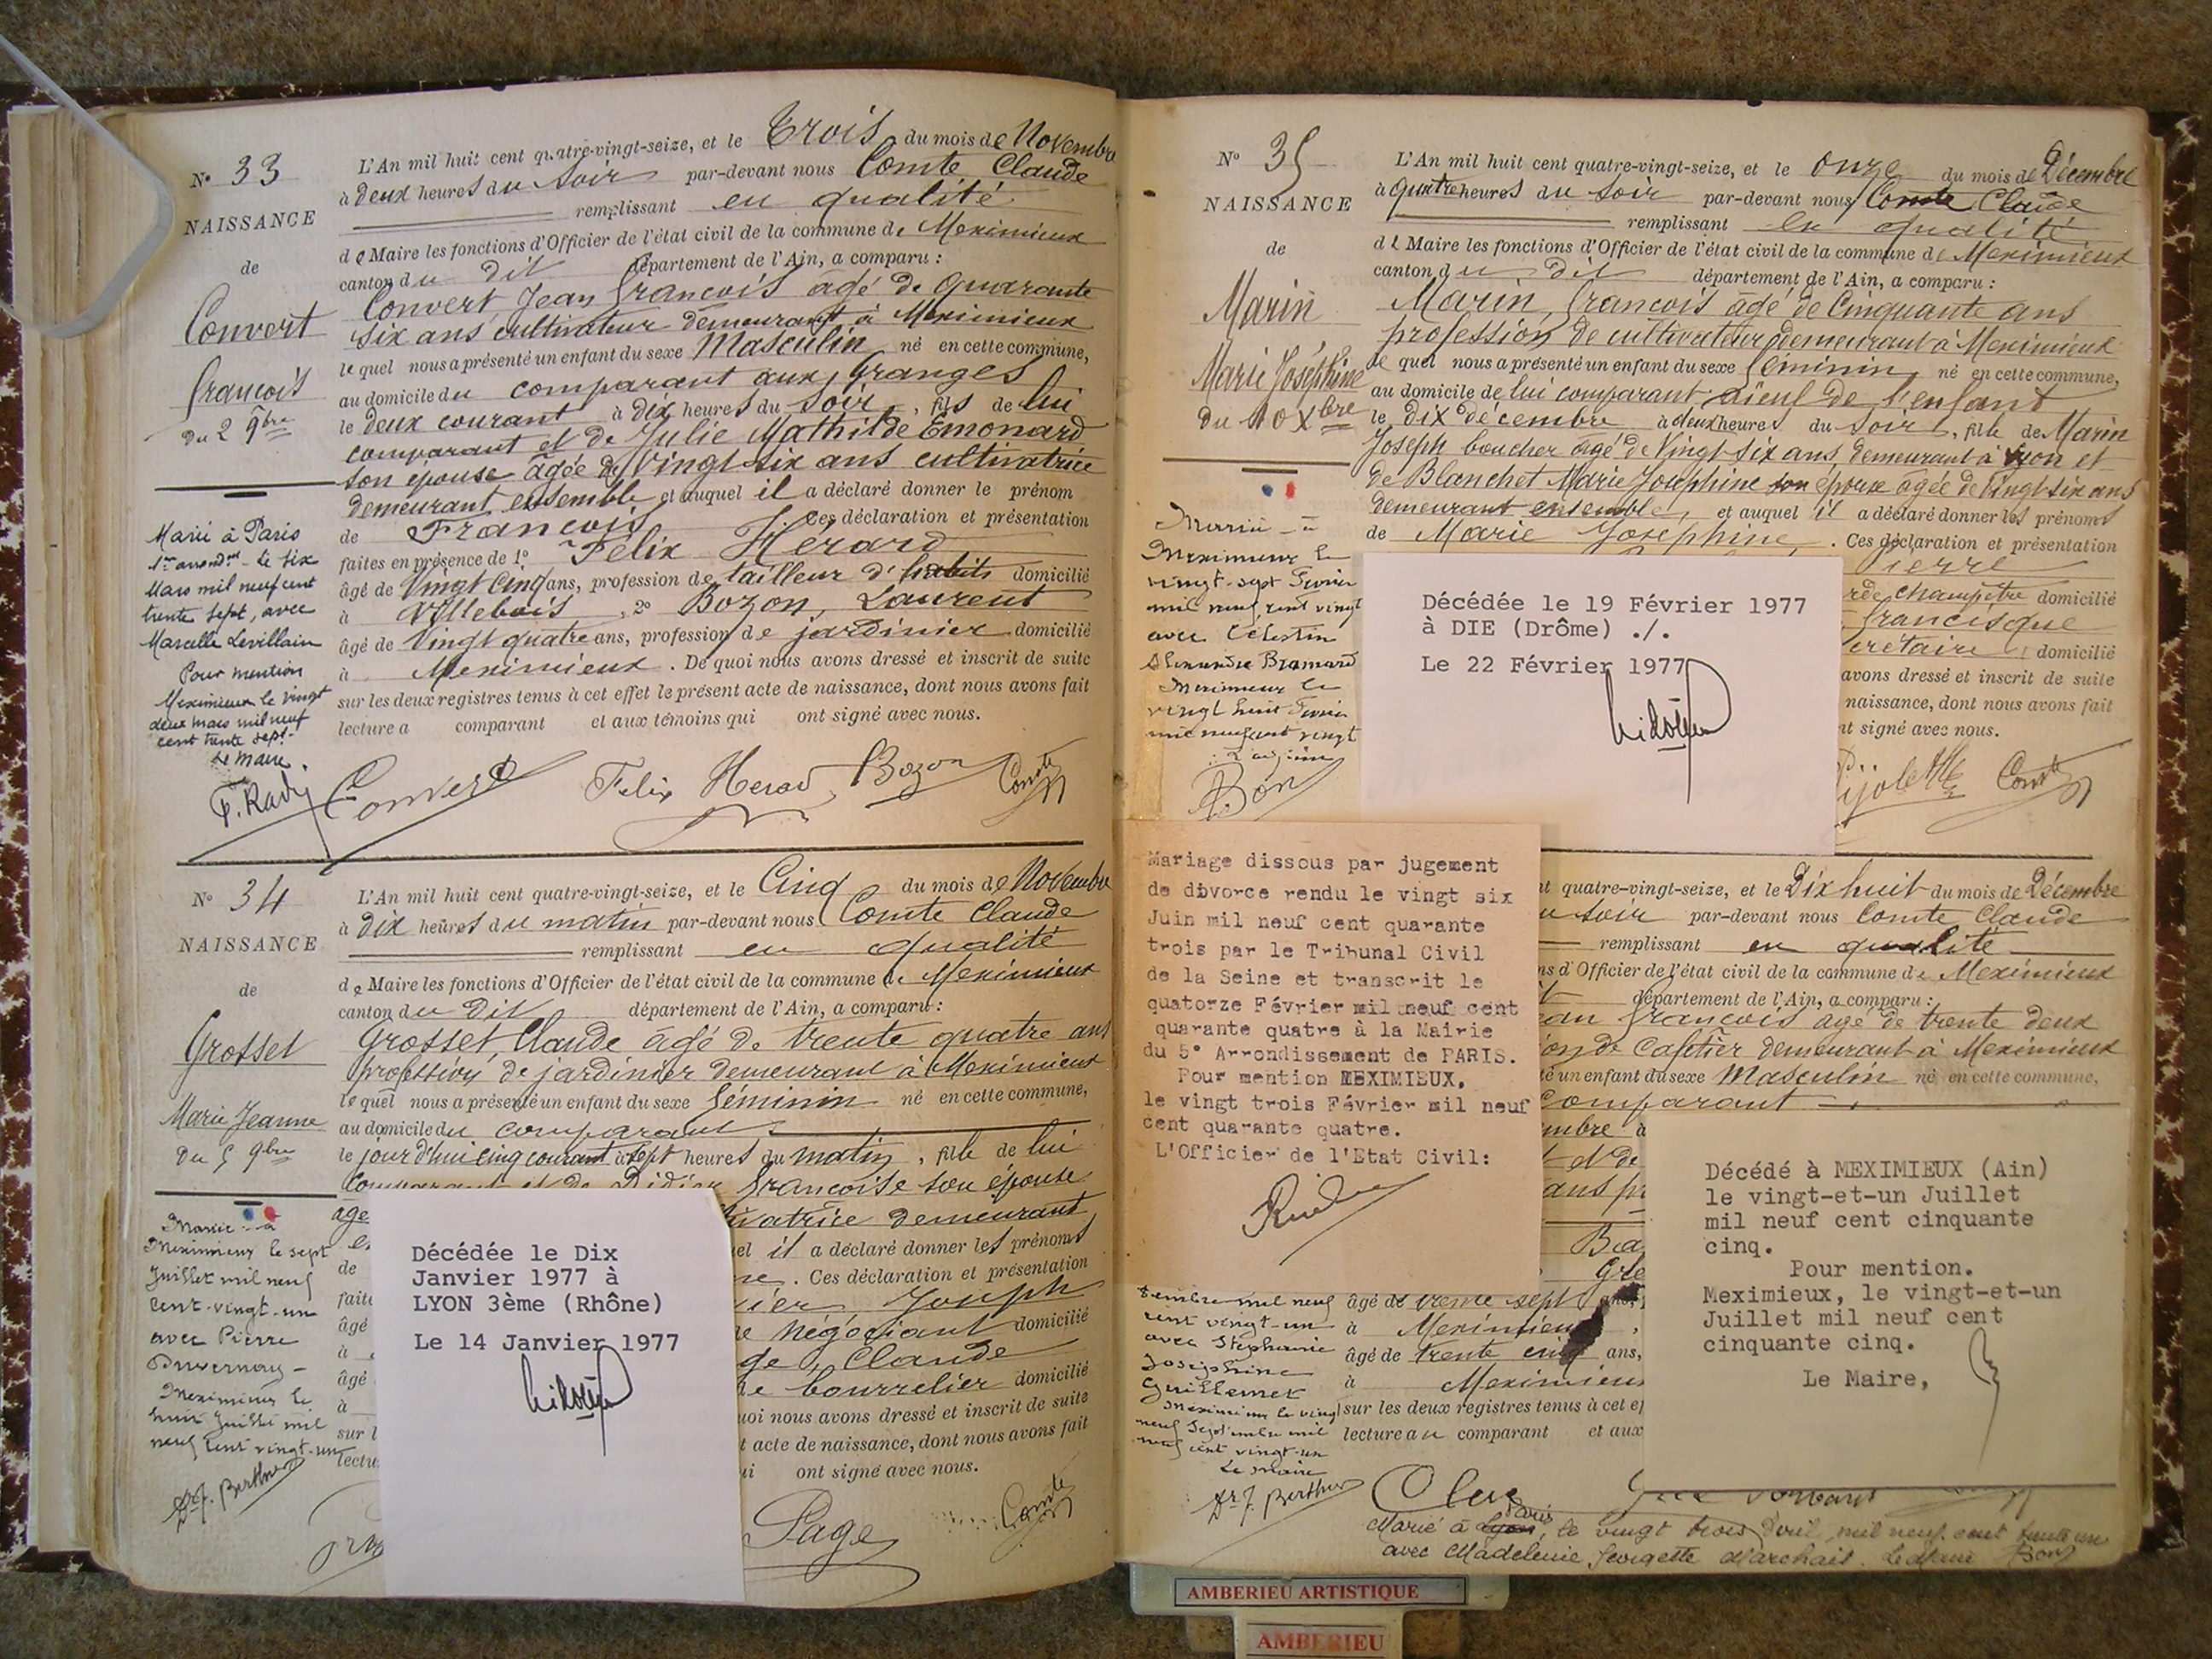 N° 33
NAISSANCE
de
Convert
François
du 2 9bre
Marié à Paris
le six
Mars mil neuf cent
trente sept, avec
Marcelle Levillain
Pour mention
Meximieux le vingt
deux mars mil neuf
cent trente sept.
Le Maire.
L'An mil huit cent quatre-vingt-seize, et le Trois du mois de Novembre
à deux heures du soir par-devant nous Comte Claude
remplissant en qualité
de Maire les fonctions d'Officier de l'état civil de la commune de Meximieux
canton du dit département de l'Ain, a comparu :
Convert Jean François âgé de quarante
six ans cultivateur demeurant à Meximieux
lequel nous a présenté un enfant du sexe Masculin né en cette commune,
au domicile du comparant aux Granges
le deux courant à dix heures du soir, fils de lui
comparant et de Julie Mathilde Emonard
son épouse âgée de Vingt six ans cultivatrice
demeurant ensemble et auquel il a déclaré donner le prénom
de François Ces déclaration et présentation
faites en présence de 1° Félix Hérard
âgé de Vingt cinq ans, profession de tailleur d'habits domicilié
à Villebois, 2° Bozon, Laurent
âgé de Vingt quatre ans, profession de jardinier domicilié
à Meximieux. De quoi nous avons dressé et inscrit de suite
sur les deux registres tenus à cet effet le présent acte de naissance, dont nous avons fait
lecture a comparant et aux témoins qui ont signé avec nous.
Convert Felix Herard Bozon Comte
N° 34
NAISSANCE
de
Grosset
Marie Jeanne
Du 5 9bre
Marié à
Meximieux le sept
Juillet mil neuf
cent-vingt-un
avec Pierre
Duvernay -
Meximieux le
huit Juillet mil
neuf cent vingt-un
Dr J. Berthier
L'An mil huit cent quatre-vingt-seize, et le Cinq du mois de Novembre
à dix heures du matin par-devant nous Comte Claude
remplissant en qualité
de Maire les fonctions d'Officier de l'état civil de la commune de Meximieux
canton du dit département de l'Ain, a comparu :
Grosset Claude âgé de trente quatre ans
profession de jardinier demeurant à Meximieux
lequel nous a présenté un enfant du sexe féminin né en cette commune,
au domicile du comparant
le jourd'hui cinq courant à sept heures du matin, fille de lui
comparant et de Didier Françoise son épouse
demeurant
il a déclaré donner les prénoms
de . Ces déclaration et présentation
Joseph
négociant domicilié
Claude
bourrelier domicilié
nous avons dressé et inscrit de suite
acte de naissance, dont nous avons fait
ont signé avec nous.
Page Comte
Décédée le Dix
Janvier 1977 à
LYON 3ème (Rhône)
Le 14 Janvier 1977
N° 35
NAISSANCE
de
Marin
Marie Joséphine
Du 10 Xbre
Meximieux le
vingt-sept Fevrier
mil neuf cent vingt
avec Célestin
Alexandre Bramard
Meximieux le
vingt huit Fevrier
mil neuf cent vingt
Bon
6
L'An mil huit cent quatre-vingt-seize, et le onze du mois de Décembre
à quatre heures du soir par-devant nous Comte Claude
remplissant en qualité
de Maire les fonctions d'Officier de l'état civil de la commune de Meximieux
canton du dit département de l'Ain, a comparu :
Marin, François âgé de Cinquante ans
profession de cultivateur demeurant à Meximieux
lequel nous a présenté un enfant du sexe féminin, né en cette commune,
au domicile de lui comparant aïeul de l'enfant
le dix décembre à deux heures du soir, fille de Marin
Joseph boucher âgé de Vingt-six ans demeurant à Lyon et
de Blanchet Marie Joséphine son épouse âgée de vingt-six ans
demeurant ensemble, et auquel il a déclaré donner les prénoms
de Marie Joséphine, . Ces déclaration et présentation
Pierre
champêtre domicilié
Francisque
domicilié
avons dressé et inscrit de suite
naissance, dont nous avons fait
signé avec nous.
Comte
Décédée le 19 Février 1977
à DIE (Drôme) ./.
Le 22 Février 1977
Mariage dissous par jugement
de divorce rendu le vingt six
Juin mil neuf cent quarante
trois par le Tribunal Civil
de la Seine et transcrit le
quatorze Février mil neuf cent
quarante quatre à la Mairie
du 5° Arrondissement de PARIS.
Pour mention MEXIMIEUX,
le vingt trois Février mil neuf
cent quarante quatre.
L'Officier de l'Etat Civil:
quatre-vingt-seize, et le Dix huit du mois de Décembre
soir par-devant nous Comte Claude
remplissant en qualité
d'Officier de l'état civil de la commune de Meximieux
département de l'Ain, a comparu :
François âgé de trente deux
de Cafetier demeurant à Meximieux
un enfant du sexe Masculin né en cette commune,
comparant
âgé de trente sept ans,
à Meximieux,
âgé de trente cinq ans,
à Meximieux
sur les deux registres tenus à cet
lecture au comparant et aux
mil neuf
cent vingt-un
avec Stephanie
Josephine
Guillemet
Meximieux le vingt
neuf Septembre mil
neuf cent vingt-un
Le Maire
Dr J. Berthier
Décédé à MEXIMIEUX (Ain)
le vingt-et-un Juillet
mil neuf cent cinquante
cinq.
Pour mention.
Meximieux, le vingt-et-un
Juillet mil neuf cent
cinquante cinq.
Le Maire,
Marié à Lyon Paris, le vingt trois avril mil neuf cent trente un
avec Madeleine Georgette Marchais. Le Maire Bon
AMBERIEU ARTISTIQUE
AMBERIEU